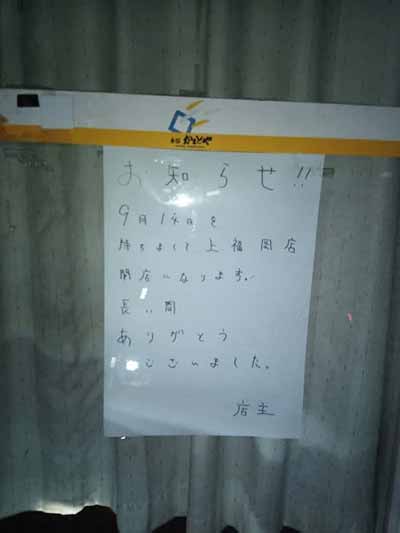 お知らせ!!
9月14日を
持ちまして上福岡店
閉店になります。
長い間
ありがとう
ございました。
店主